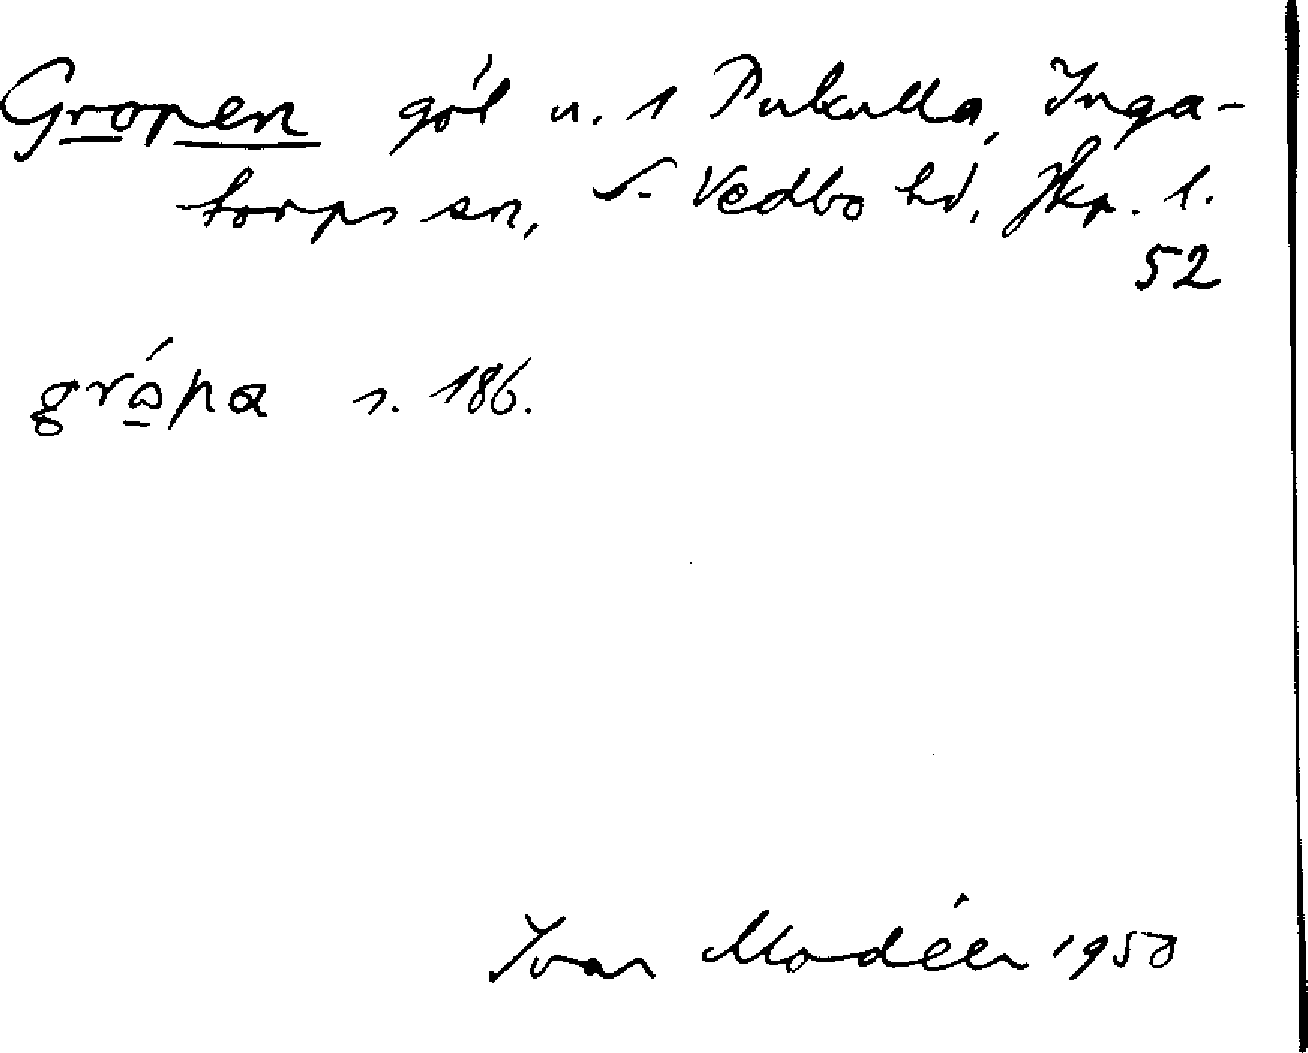 Gropen göl u. 1 Pukulla, Inga-
torps sn, S. Vedbo hd, Jkp. l.
52
gròpa s. 186.
Ivar Modéer 1950